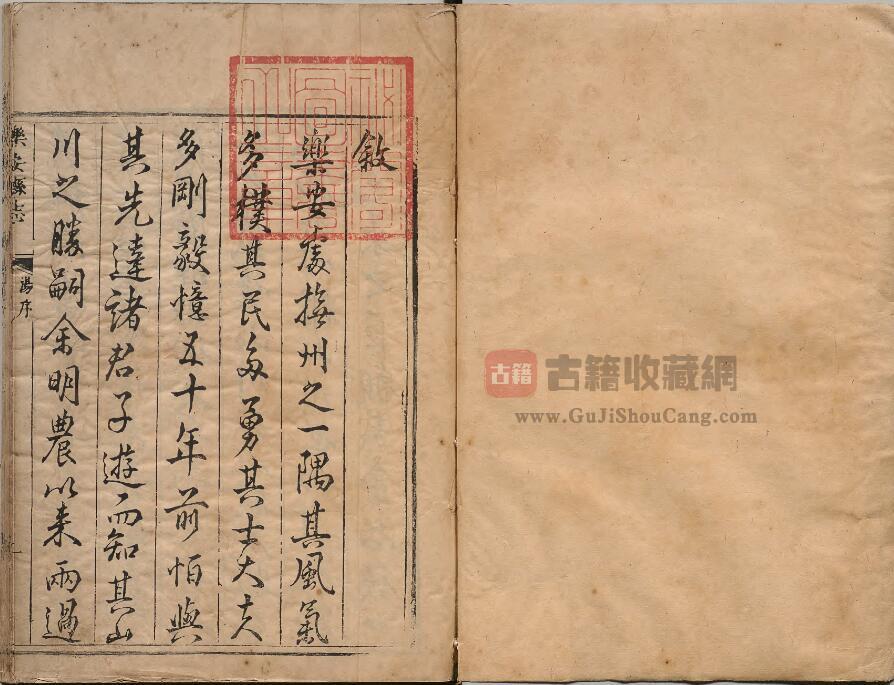 敘
樂安處撫州之一隅其風氣
多樸其民多勇其士大夫
多剛毅憶五十年前怕與
其先達諸君子遊而知其山
川之勝嗣余明農以來兩過
樂安縣志
湯序
古籍
古籍收藏網
www.GuJiShouCang.com